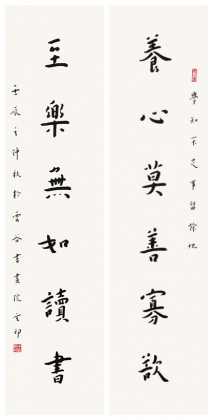 養心莫善寡欲
至樂無如讀書
學知不足 事留餘地
壬辰之仲秋於雲谷書畫院